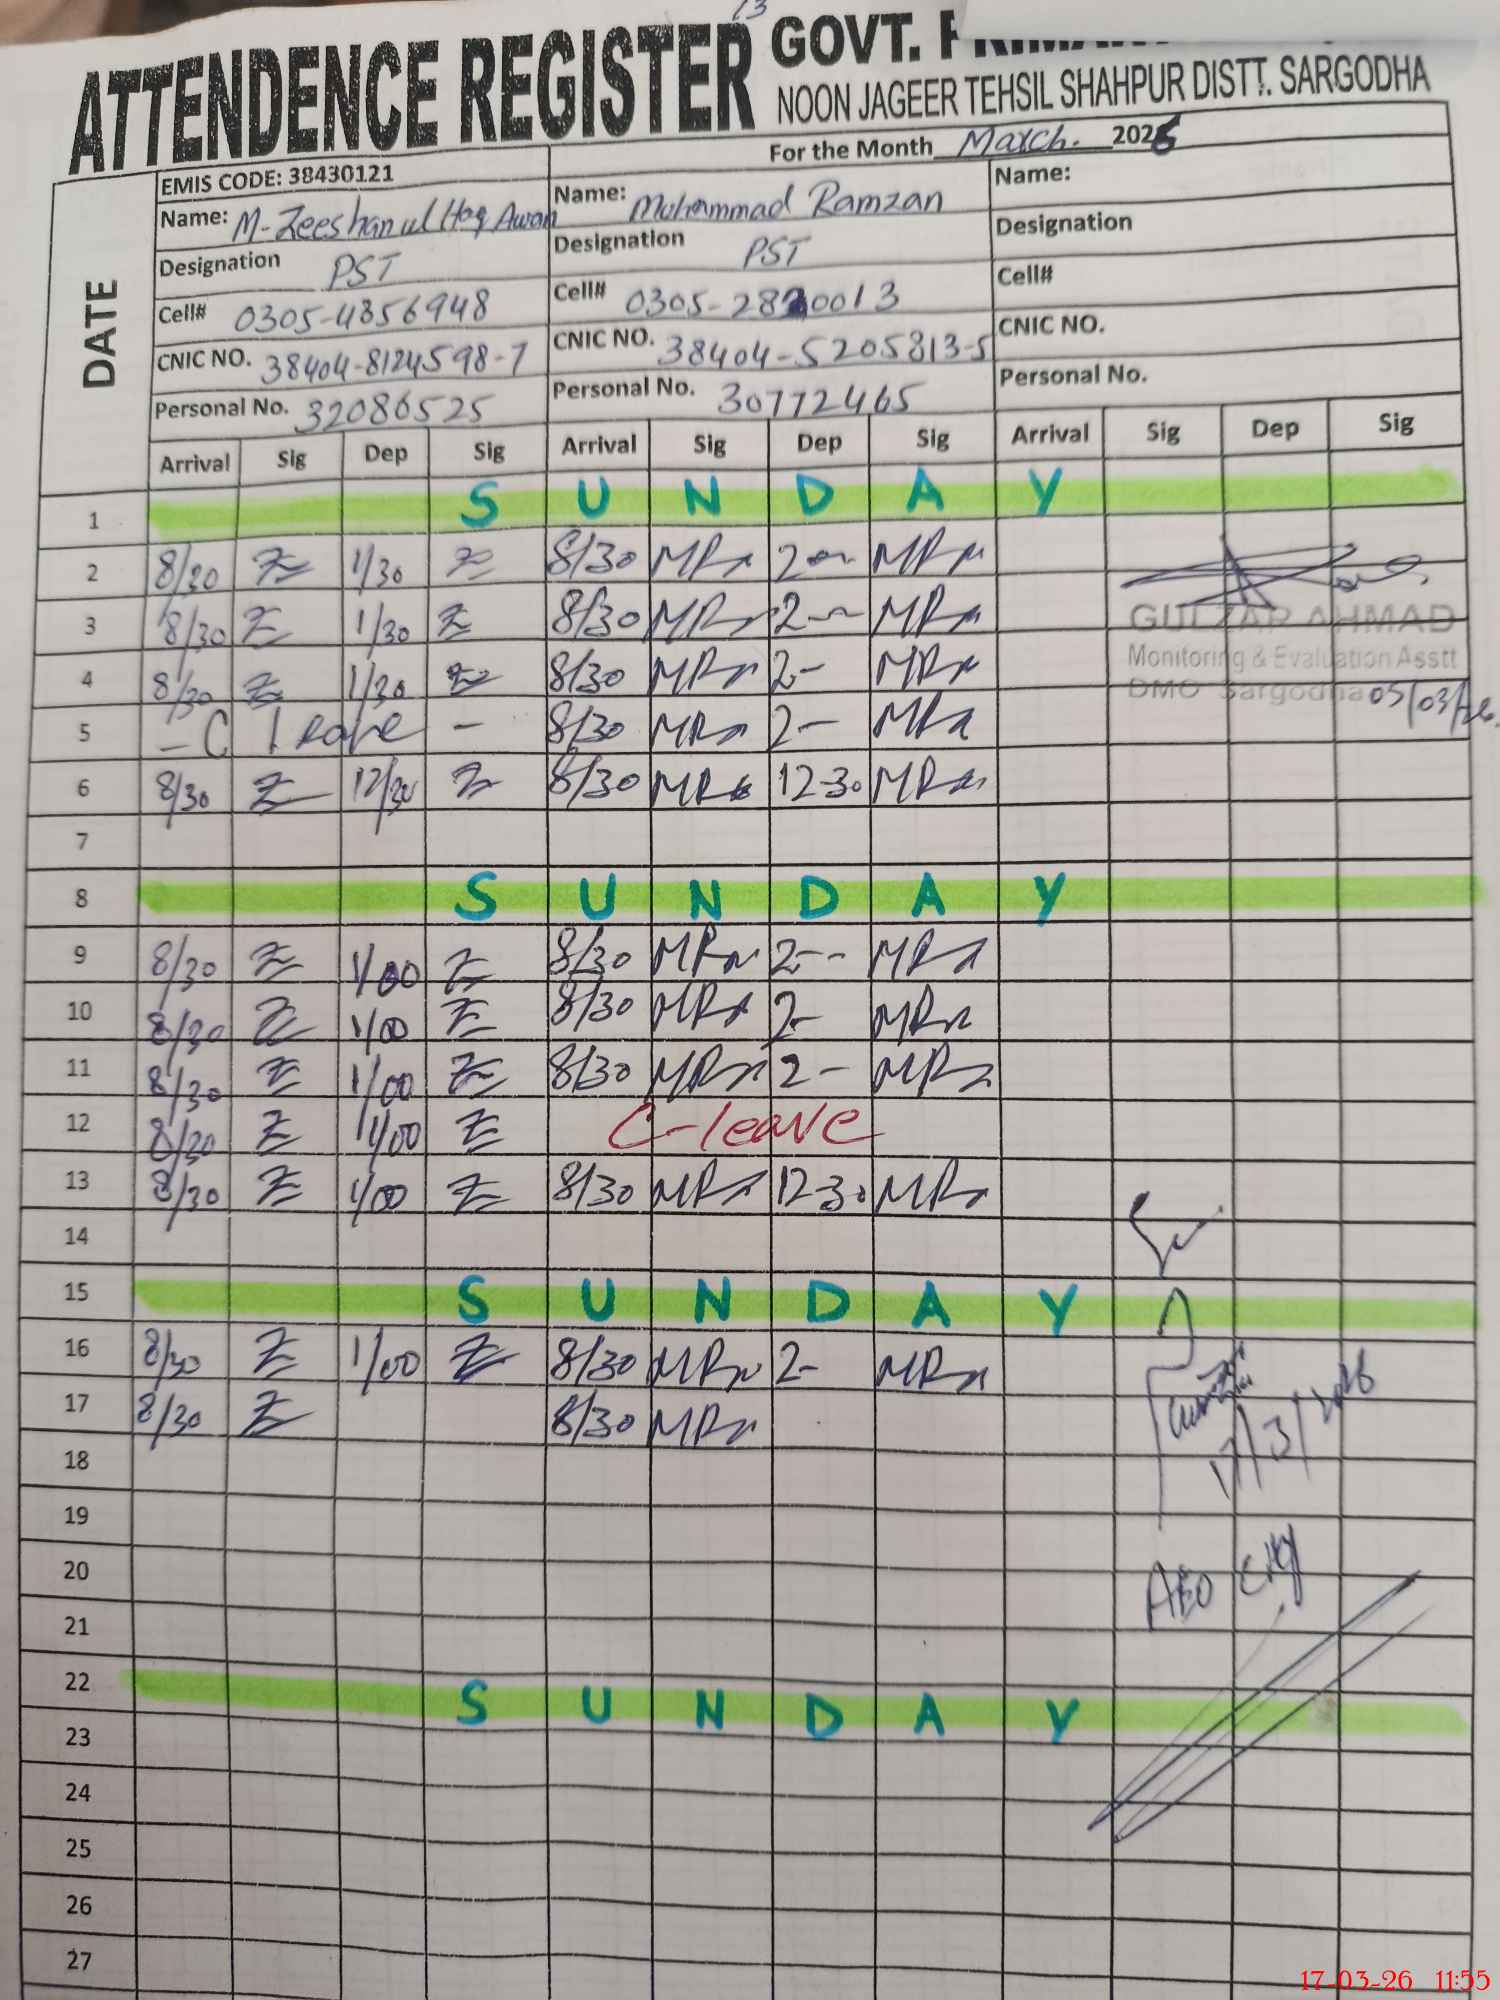 13
ATTENDENCE REGISTER GOVT.
NOON JAGEER TEHSIL SHAHPUR DISTT. SARGODHA
For the Month March. 2026
DATE
EMIS CODE: 38430121
Name: M-Zeeshan ul Haq Awan Name: Muhammad Ramzan Name:
Designation PST Designation PST Designation
Cell# 0305-4856948 Cell# 0305-2820013 Cell#
CNIC NO. 38404-8124598-7 CNIC NO. 38404-5205813-5 CNIC NO.
Personal No. 32086525 Personal No. 30772465 Personal No.
Arrival Sig Dep Sig Arrival Sig Dep Sig Arrival Sig Dep Sig
1 SUNDAY
2 8/30 1/30 8/30 2
3 8/30 1/30 8/30 2
GULZAR AHMAD
4 8/30 1/30 8/30 2-
Monitoring & Evaluation Asstt
DMO Sargodha 05/03/26.
5 - C leave - 8/30 2-
6 8/30 12/30 8/30 12-30
7
8 SUNDAY
9 8/30 1/00 8/30 2--
10 8/30 1/00 8/30 2-
11 8/30 1/00 8/30 2-
12 8/30 1/00 C-leave
13 8/30 1/00 8/30 12-30
14
15 SUNDAY
16 8/30 1/00 8/30 2-
17 8/30 8/30
17/3/2026
18
19
20
AEO City
21
22 SUNDAY
23
24
25
26
27
17-03-26 11:55